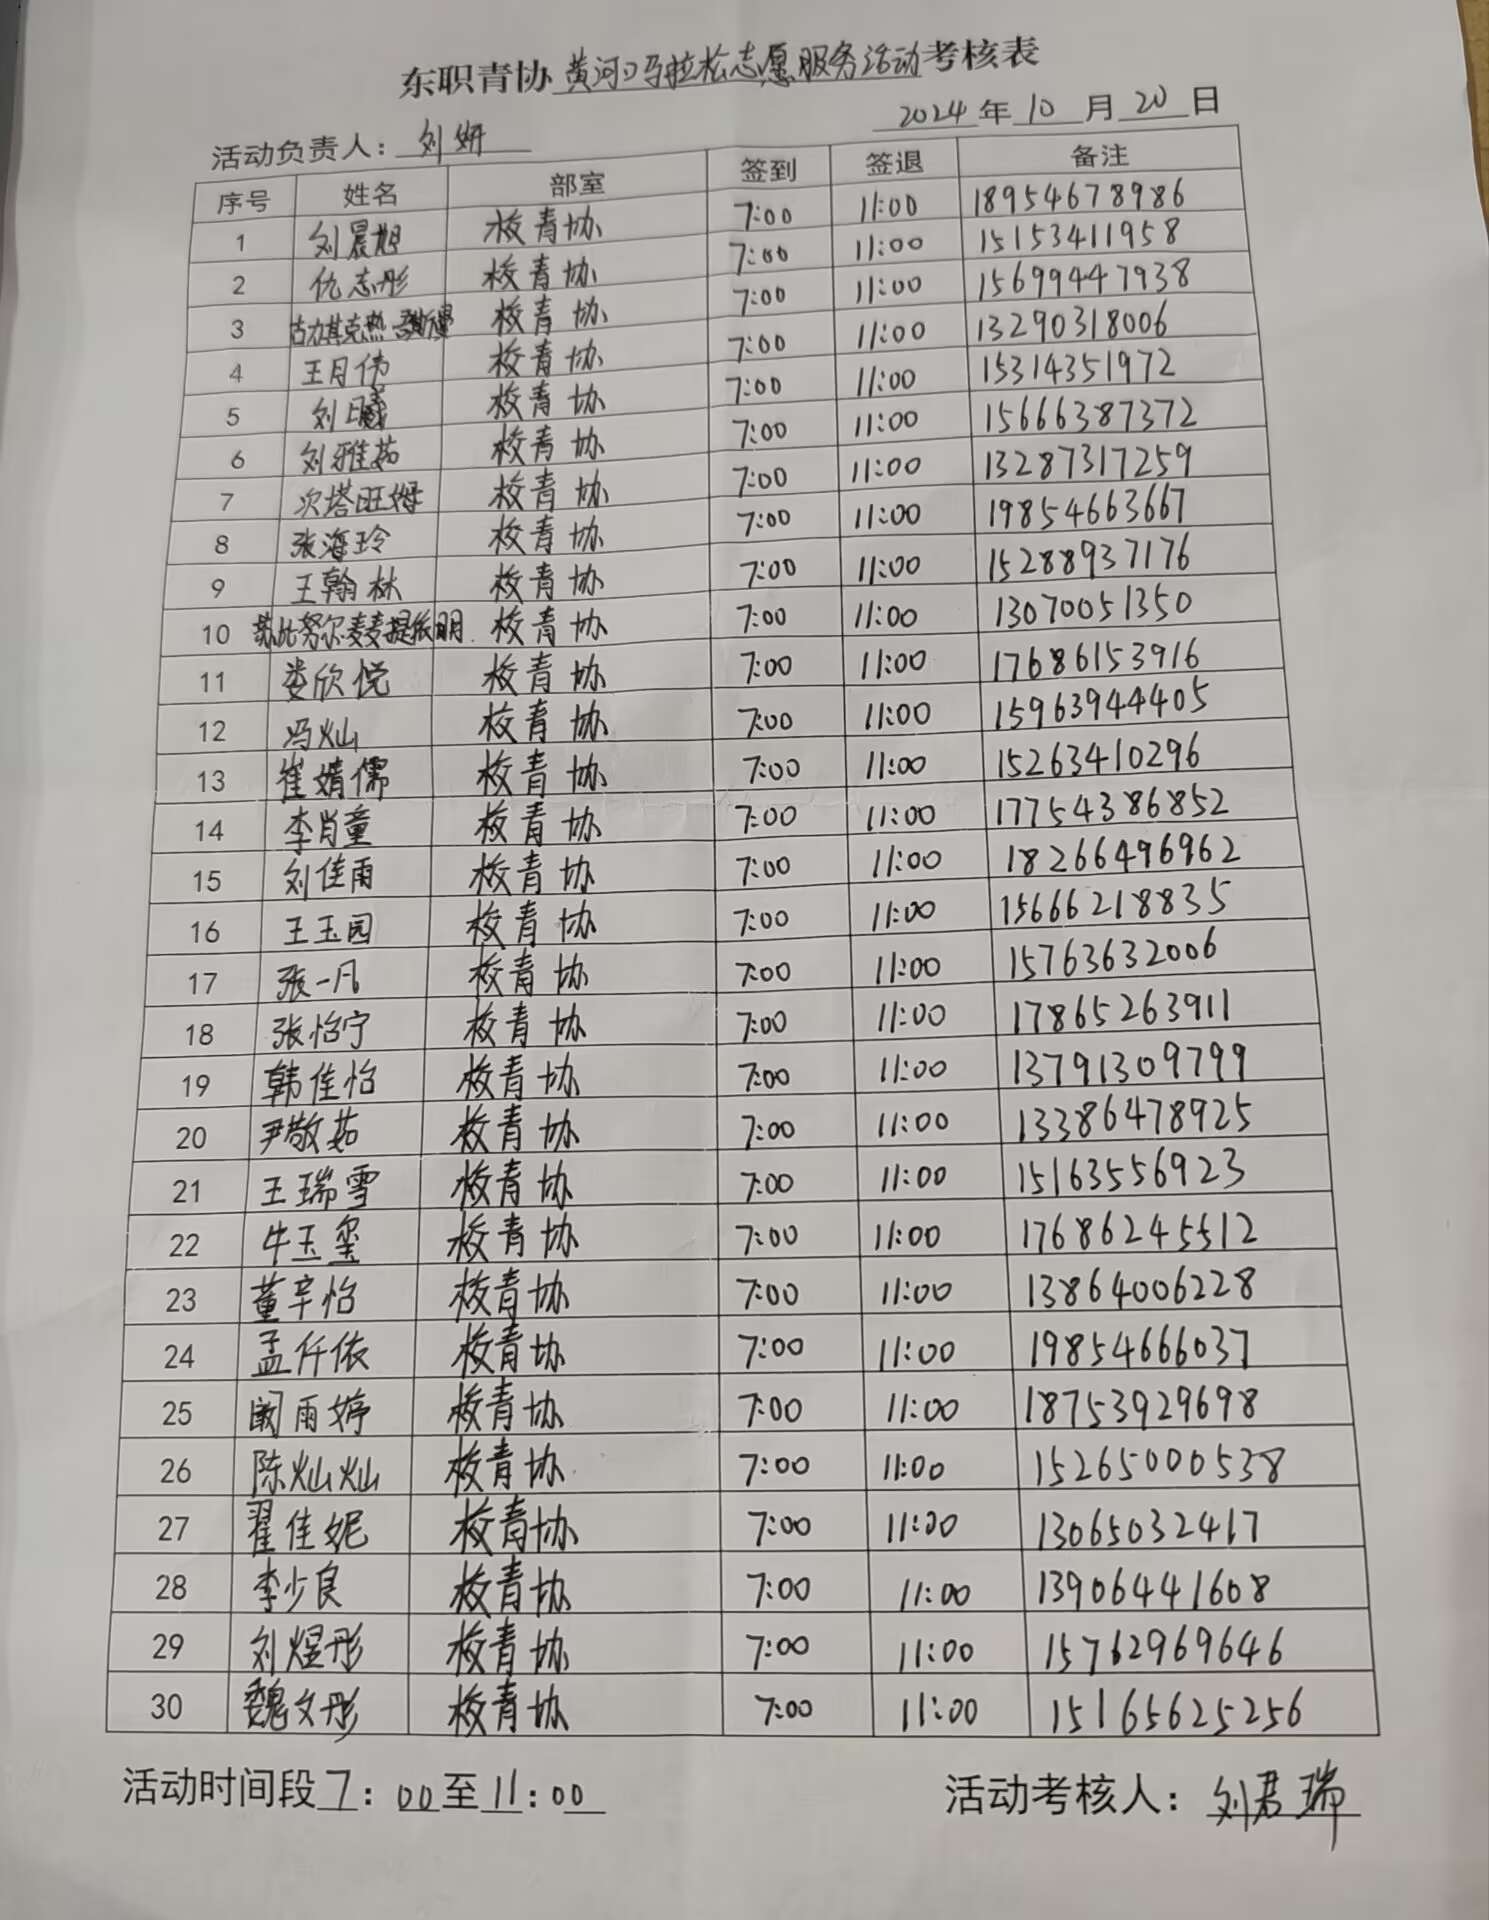 东职青协黄河口马拉松志愿服务活动考核表
2024年10月20日
活动负责人：刘妍
序号 姓名 部室 签到 签退 备注
1 刘晨旭 校青协 7:00 11:00 18954678986
2 仇志彤 校青协 7:00 11:00 15153411958
3 校青协 7:00 11:00 15699447938
4 王月伟 校青协 7:00 11:00 13290318006
5 刘曦 校青协 7:00 11:00 15314351972
6 刘雅茹 校青协 7:00 11:00 15666387372
7 次塔旺姆 校青协 7:00 11:00 13287317259
8 张海玲 校青协 7:00 11:00 19854663667
9 王翰林 校青协 7:00 11:00 15288937176
10 苏比努尔·麦麦提依明 校青协 7:00 11:00 13070051350
11 娄欣悦 校青协 7:00 11:00 17686153916
12 冯灿 校青协 7:00 11:00 15963944405
13 崔婧儒 校青协 7:00 11:00 15263410296
14 李肖童 校青协 7:00 11:00 17754386852
15 刘佳雨 校青协 7:00 11:00 18266496962
16 王玉园 校青协 7:00 11:00 15666218835
17 张一凡 校青协 7:00 11:00 15763632006
18 张怡宁 校青协 7:00 11:00 17865263911
19 韩佳怡 校青协 7:00 11:00 13791309799
20 尹敬茹 校青协 7:00 11:00 13386478925
21 王瑞雪 校青协 7:00 11:00 15163556923
22 牛玉玺 校青协 7:00 11:00 17686245512
23 董辛怡 校青协 7:00 11:00 13864006228
24 孟仟依 校青协 7:00 11:00 19854666037
25 阚雨婷 校青协 7:00 11:00 18753929698
26 陈灿灿 校青协 7:00 11:00 15265000538
27 翟佳妮 校青协 7:00 11:00 13065032417
28 李少良 校青协 7:00 11:00 13906441608
29 刘煜彤 校青协 7:00 11:00 15762969646
30 魏文彤 校青协 7:00 11:00 15165625256
活动时间段7：00至11：00 活动考核人：刘君瑞